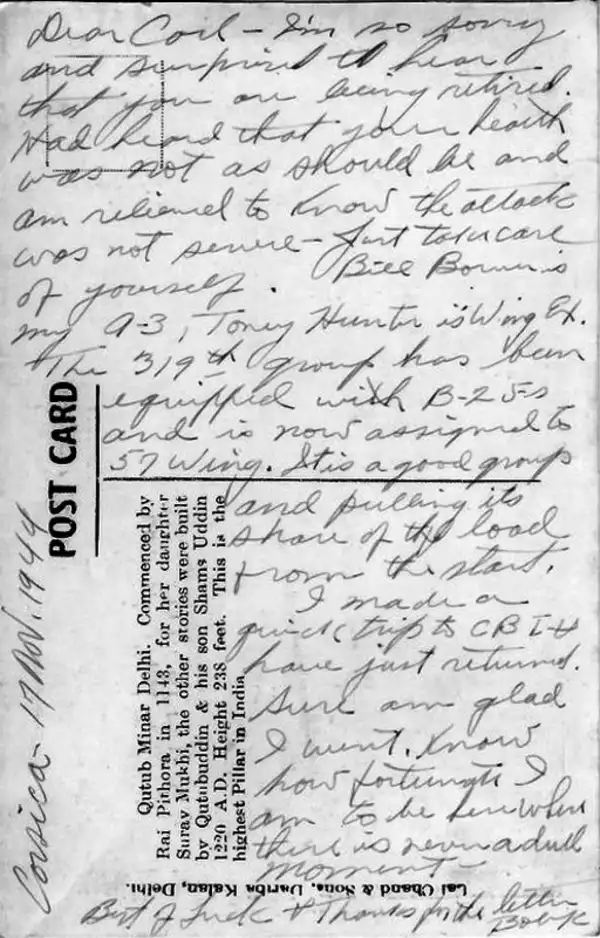 Dear Carl - I'm so sorry
and surprised to hear
that you are being retired.
Had heard that your health
was not as should be and
am relieved to know the attack
was not severe - Just take care
of yourself. Bill Bower is
my A-3, Toney Hunter is Wing Ex.
The 319th group has been
equipped with B-25s
and is now assigned to
57 Wing. It is a good group
and pulling its
share of the load
from the start.
I made a
quick trip to CBI &
have just returned.
Sure am glad
I went. Know
how fortunate I
am to be here where
there is never a dull
moment -
Best of Luck & Thanks for the letter
Corsica - 17 Nov. 1944
POST CARD
Qutub Minar Delhi. Commenced by
Rai Pithora, in 1143, for her daughter
Suray Mukhi, the other stories were built
by Qutubuddin & his son Shams Uddin
1220 A.D. Height 238 feet. This is the
highest Pillar in India
Lal Chand & Sons, Dariba Kalan, Delhi.